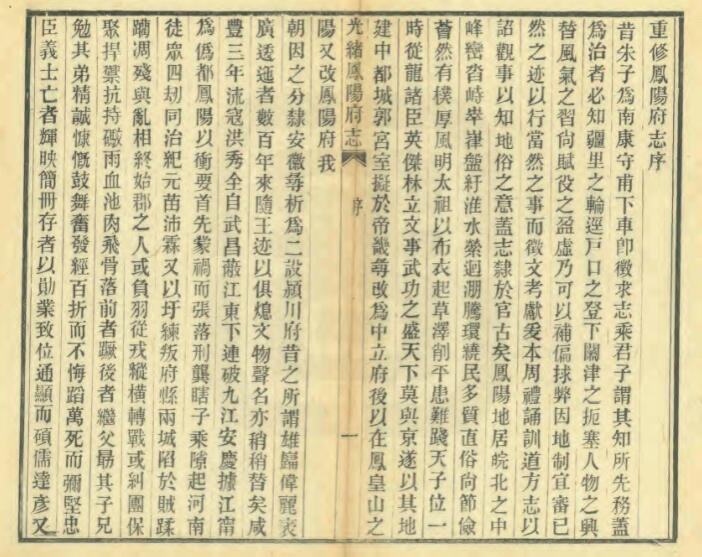 重修鳳陽府志序
昔朱子爲南康守甫下車卽徵求志乘君子謂其知所先務蓋
爲治者必知疆里之輪逕戶口之登下關津之扼塞人物之興
替風氣之習尙賦役之盈虛乃可以補偏捄弊因地制宜審已
然之迹以行當然之事而徵文考獻爰本周禮誦訓道方志以
詔觀事以知地俗之意蓋志隸於官古矣鳳陽地居皖北之中
峰巒沓峙崒嵂盤紆淮水縈迴淜騰環繞民多質直俗尙節儉
薈然有樸厚風明太祖以布衣起草澤削平患難踐天子位一
時從龍諸臣英傑林立文事武功之盛天下莫與京遂以其地
建中都城郭宮室擬於帝畿尋改爲中立府後以在鳳皇山之
光緒鳳陽府志 序 一
陽又改鳳陽府我
朝因之分隸安徽尋析爲二設潁川府昔之所謂雄巋偉麗袤
廣逶迤者數百年來隨王迹以俱熄文物聲名亦稍稍替矣咸
豐三年流寇洪秀全自武昌蔽江東下連破九江安慶據江甯
爲僞都鳳陽以衝要首先蒙禍而張落刑龔瞎子乘隙起河南
徒衆四刧同治紀元苗沛霖又以圩練叛府縣兩城陷於賊蹂
躪凋殘與亂相終始郡之人或負羽從戎縱橫轉戰或糾團保
聚捍禦抗持礮雨血池肉飛骨落前者蹶後者繼父勗其子兄
勉其弟精誠慷慨鼓舞奮發經百折而不悔蹈萬死而彌堅忠
臣義士亡者輝映簡冊存者以勛業致位通顯而碩儒達彥又